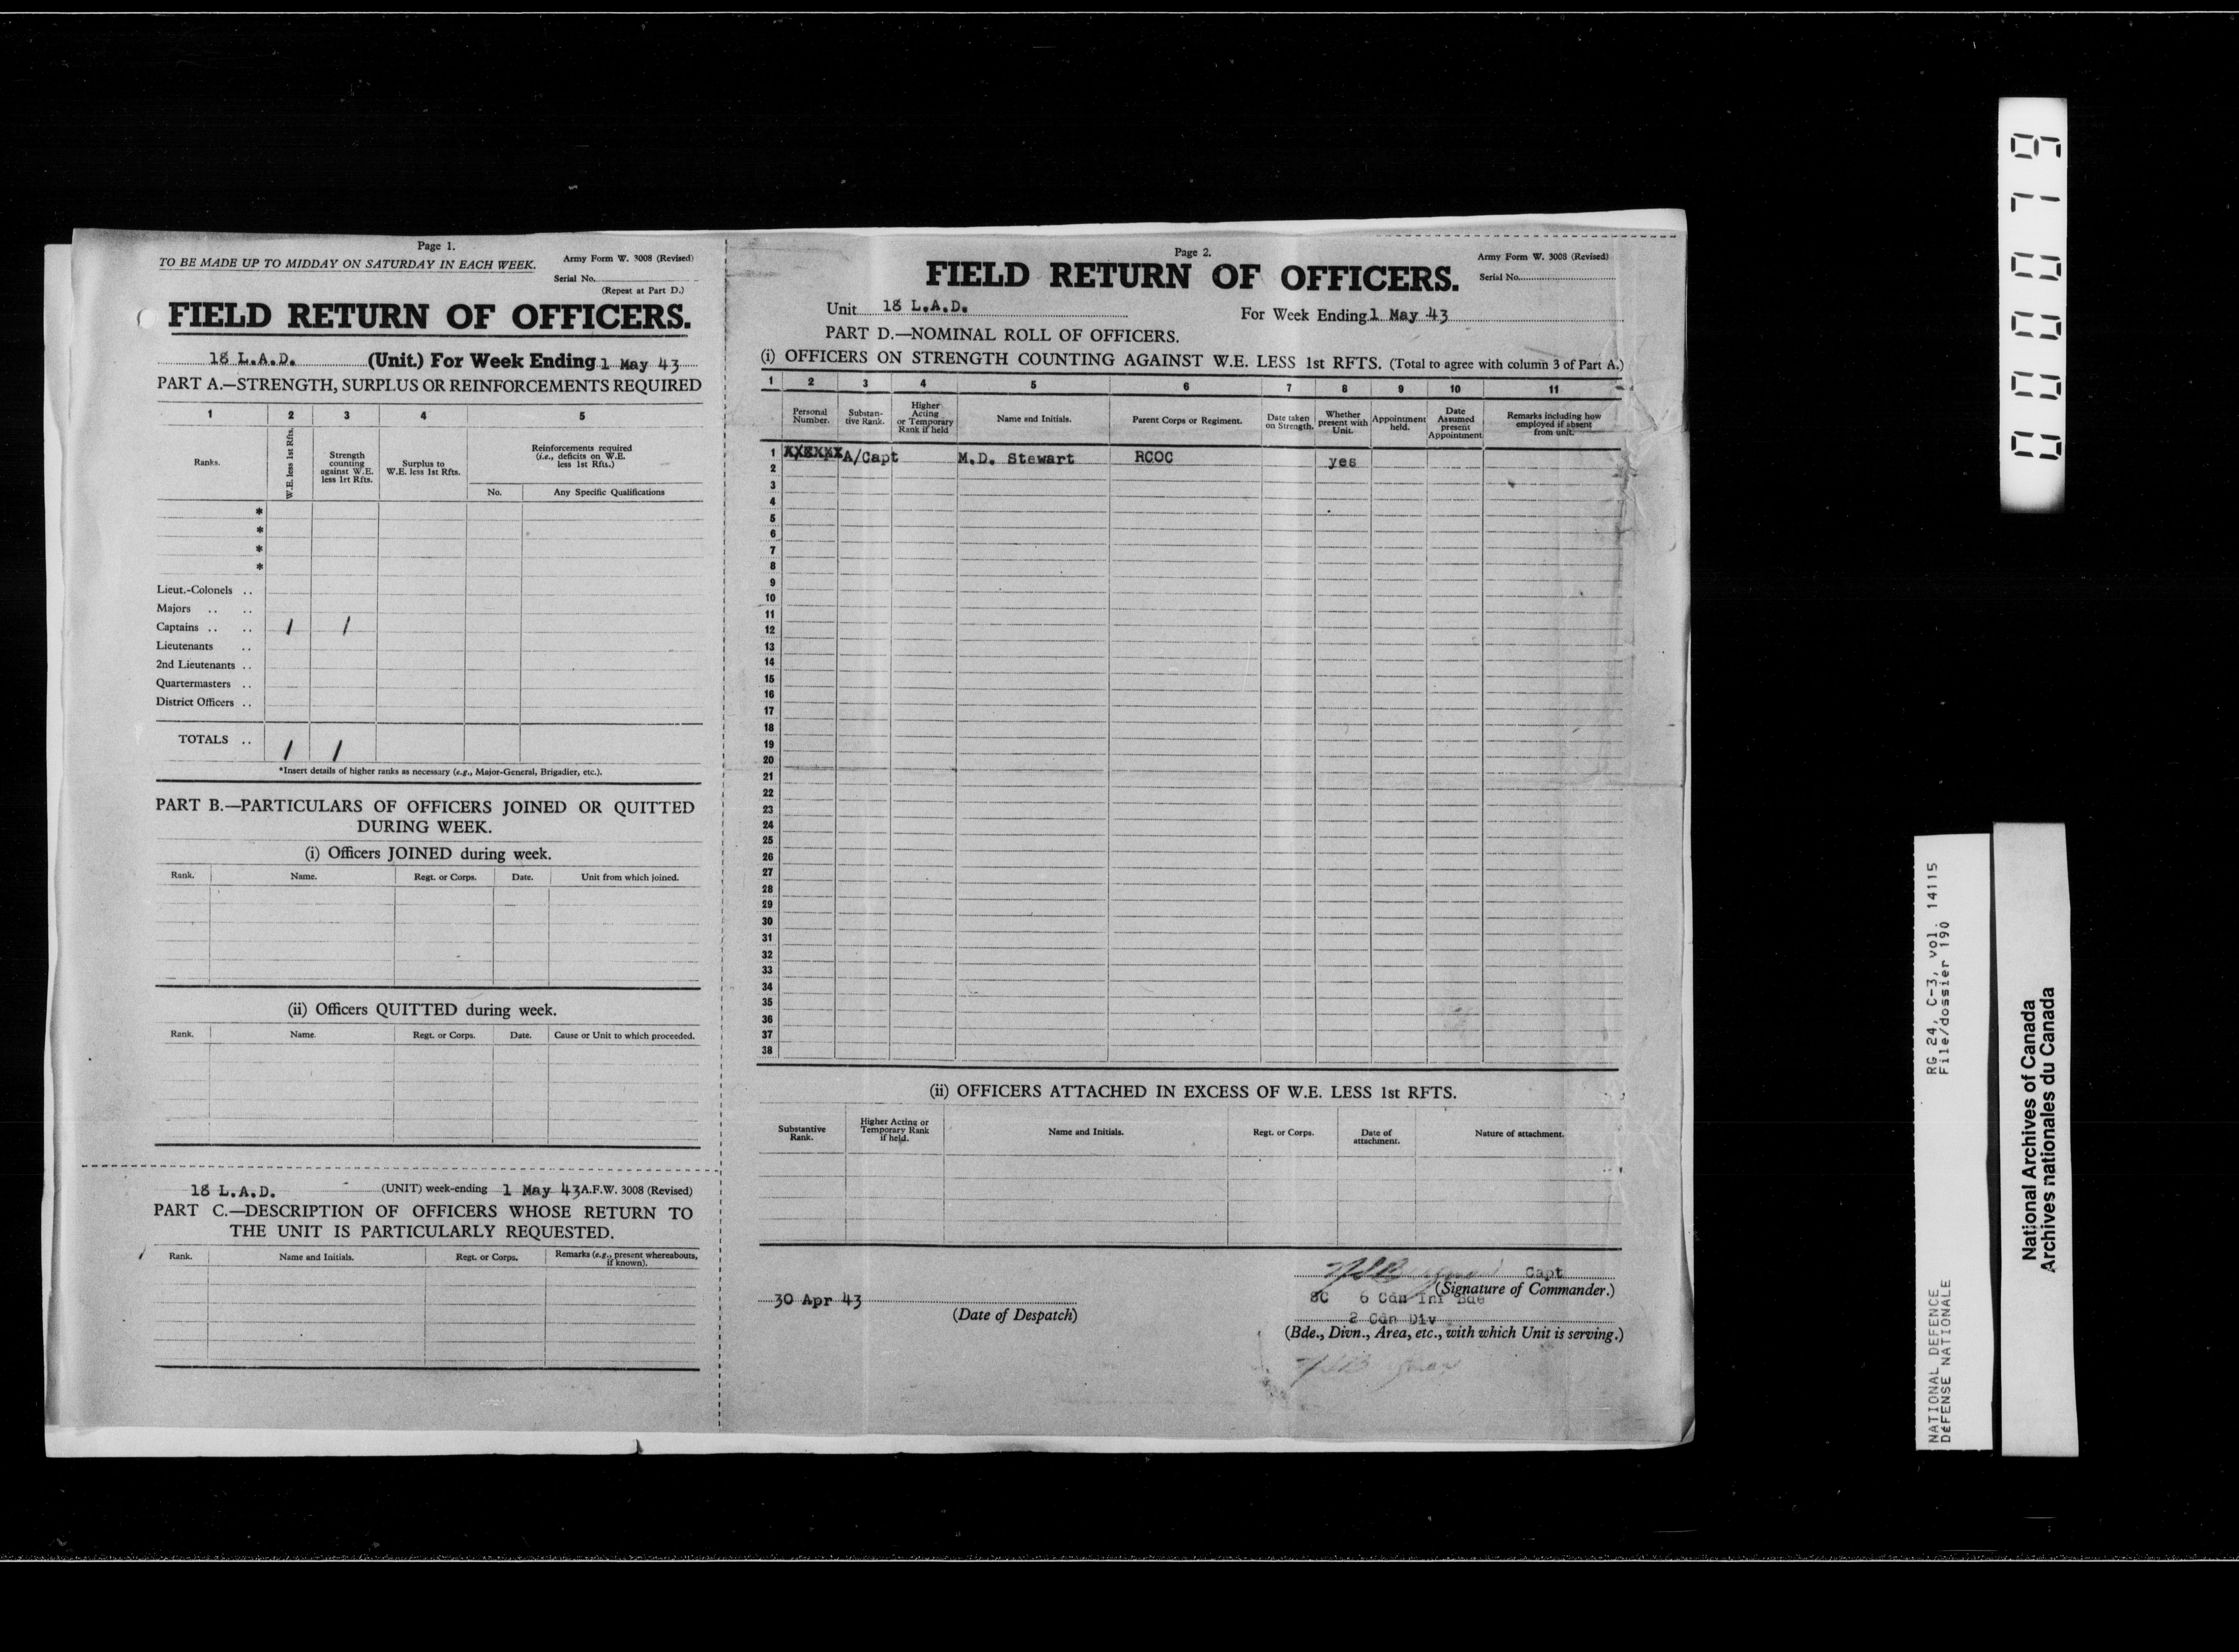 Page 1.
TO BE MADE UP TO MIDDAY ON SATURDAY IN EACH WEEK.
Army Form W. 3008 (Revised)
Serial No.
(Repeat at Part D.)
FIELD RETURN OF OFFICERS.
18 L.A.D. (Unit.) For Week Ending 1 May 43
PART A.—STRENGTH, SURPLUS OR REINFORCEMENTS REQUIRED
1 2 3 4 5
Ranks.
W.E. less 1st Rfts.
Strength counting against W.E. less 1rt Rfts.
Surplus to W.E. less 1st Rfts.
Reinforcements required (i.e., deficits on W.E. less 1st Rfts.)
No. Any Specific Qualifications
*
*
*
*
Lieut.-Colonels ..
Majors .. ..
Captains .. .. 1 1
Lieutenants ..
2nd Lieutenants ..
Quartermasters ..
District Officers ..
TOTALS .. 1 1
*Insert details of higher ranks as necessary (e.g., Major-General, Brigadier, etc.).
PART B.—PARTICULARS OF OFFICERS JOINED OR QUITTED
DURING WEEK.
(i) Officers JOINED during week.
Rank. Name. Regt. or Corps. Date. Unit from which joined.
(ii) Officers QUITTED during week.
Rank. Name. Regt. or Corps. Date. Cause or Unit to which proceeded.
18 L.A.D. (UNIT) week-ending 1 May 43 A.F.W. 3008 (Revised)
PART C.—DESCRIPTION OF OFFICERS WHOSE RETURN TO
THE UNIT IS PARTICULARLY REQUESTED.
Rank. Name and Initials. Regt. or Corps. Remarks (e.g., present whereabouts, if known).
Page 2.
Army Form W. 3008 (Revised)
Serial No.
FIELD RETURN OF OFFICERS.
Unit 18 L.A.D. For Week Ending 1 May 43
PART D.—NOMINAL ROLL OF OFFICERS.
(i) OFFICERS ON STRENGTH COUNTING AGAINST W.E. LESS 1st RFTS. (Total to agree with column 3 of Part A.)
1 2 3 4 5 6 7 8 9 10 11
Personal Number.
Substan-tive Rank.
Higher Acting or Temporary Rank if held
Name and Initials.
Parent Corps or Regiment.
Date taken on Strength.
Whether present with Unit.
Appointment held.
Date Assumed present Appointment
Remarks including how employed if absent from unit.
1 A/Capt M.D. Stewart RCOC yes
2
3
4
5
6
7
8
9
10
11
12
13
14
15
16
17
18
19
20
21
22
23
24
25
26
27
28
29
30
31
32
33
34
35
36
37
38
(ii) OFFICERS ATTACHED IN EXCESS OF W.E. LESS 1st RFTS.
Substantive Rank.
Higher Acting or Temporary Rank if held.
Name and Initials.
Regt. or Corps.
Date of attachment.
Nature of attachment.
Capt
(Signature of Commander.)
SC 6 Cdn Inf Bde
30 Apr 43
(Date of Despatch)
2 Cdn Div
(Bde., Divn., Area, etc., with which Unit is serving.)
000079
RG 24, C-3, vol. 14115
File/dossier 190
NATIONAL DEFENCE
DÉFENSE NATIONALE
National Archives of Canada
Archives nationales du Canada